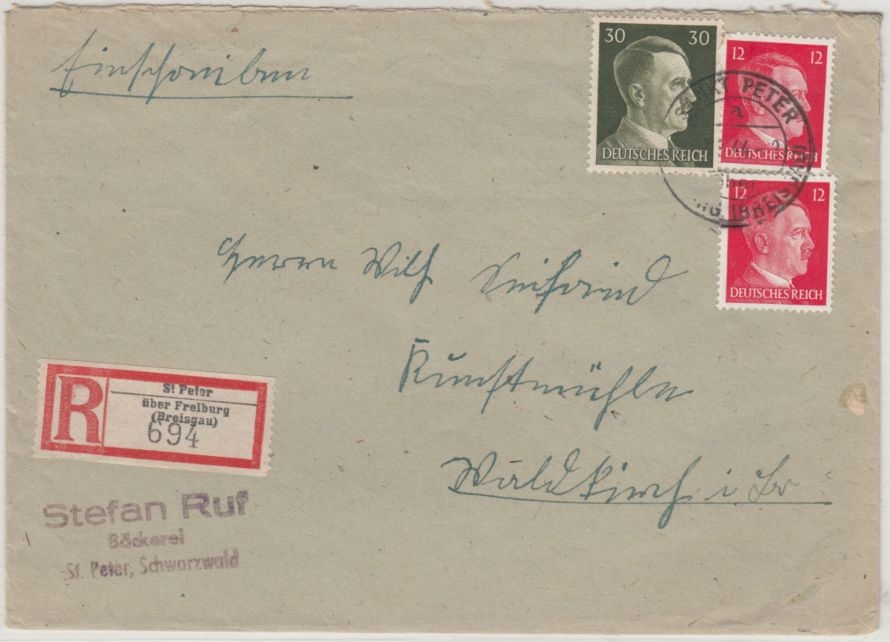 Einschreiben
30 30
DEUTSCHES REICH
12 12
DEUTSCHES REICH
12 12
DEUTSCHES REICH
SANKT PETER
(BREISGAU)
Herrn Wilh
Kunstmühle
Waldkirch i Br
R
St Peter
über Freiburg
(Breisgau)
694
Stefan Ruf
Bäckerei
St. Peter, Schwarzwald